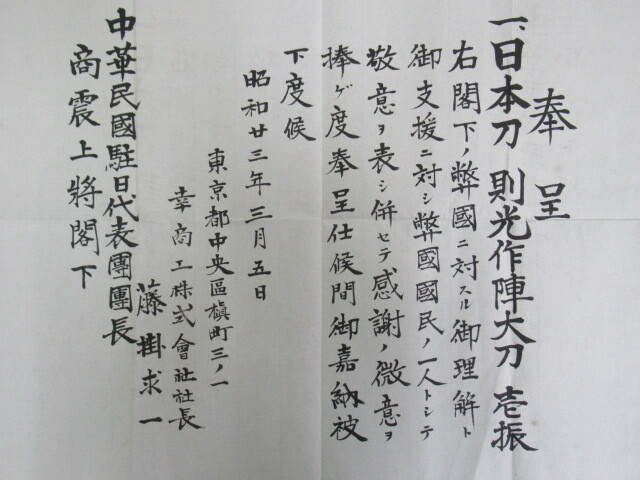 奉呈
一、日本刀 則光作陣大刀 壱振
右閣下ノ弊國ニ対スル御理解ト
御支援ニ対シ弊國國民ノ一人トシテ
敬意ヲ表シ併セテ感謝ノ微意ヲ
捧ゲ度奉呈仕候間御嘉納被
下度候
昭和廿三年三月五日
東京都中央區槇町三ノ一
幸商工株式會社社長
藤掛求一
中華民國駐日代表團團長
商震上將閣下